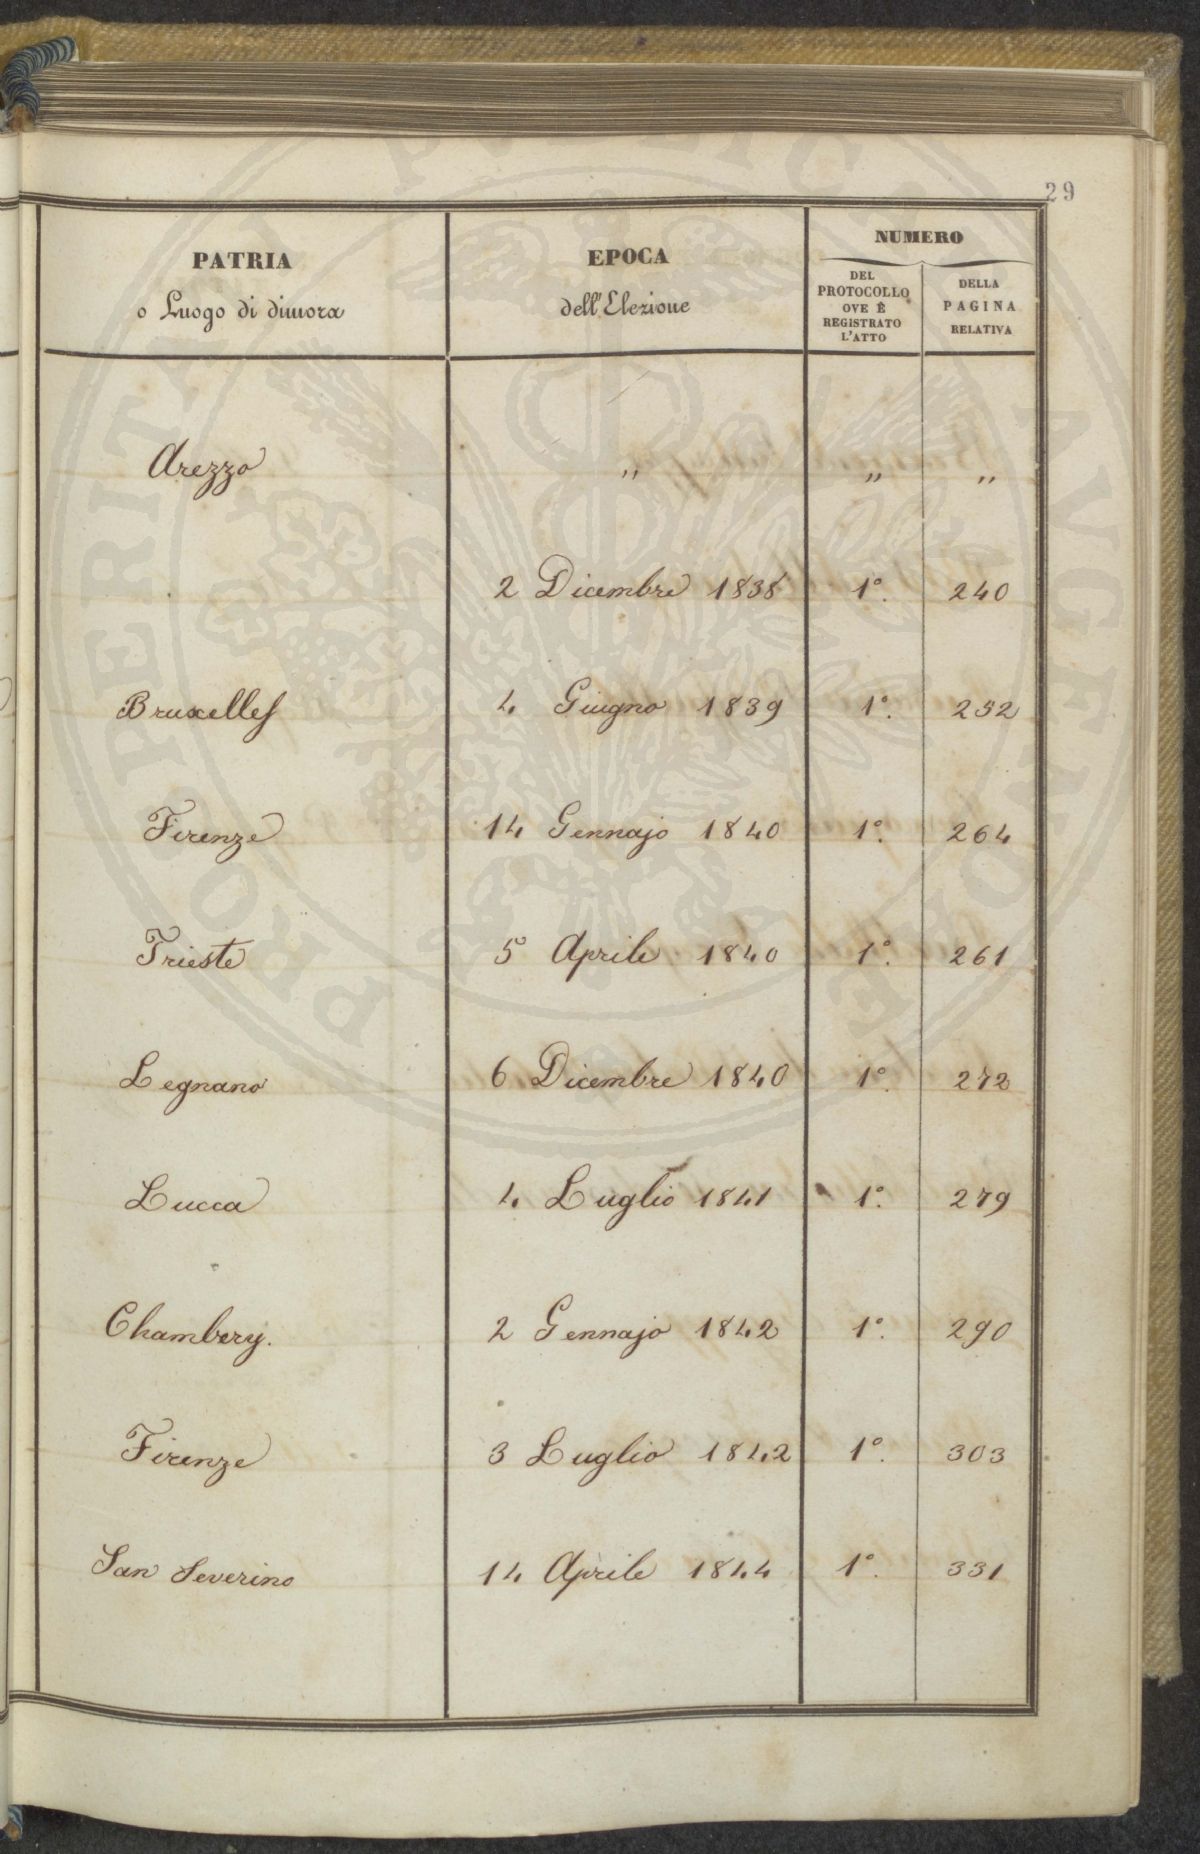 29
PATRIA
o Luogo di dimora
EPOCA
dell'Elezione
NUMERO
DEL
PROTOCOLLO
OVE È
REGISTRATO
L'ATTO
DELLA
PAGINA
RELATIVA
Arezzo " " "
2 Dicembre 1838 1º. 240
Bruxelles 4 Giugno 1839 1º. 252
Firenze 14 Gennajo 1840 1º. 264
Trieste 5 Aprile 1840 1º. 261
Legnano 6 Dicembre 1840 1º. 272
Lucca 4 Luglio 1841 1º. 279
Chambery. 2 Gennajo 1842 1º. 290
Firenze 3 Luglio 1842 1º. 303
San Severino 14 Aprile 1844 1º. 331
PROSPERITATI PUBLICAE AVGENDAE